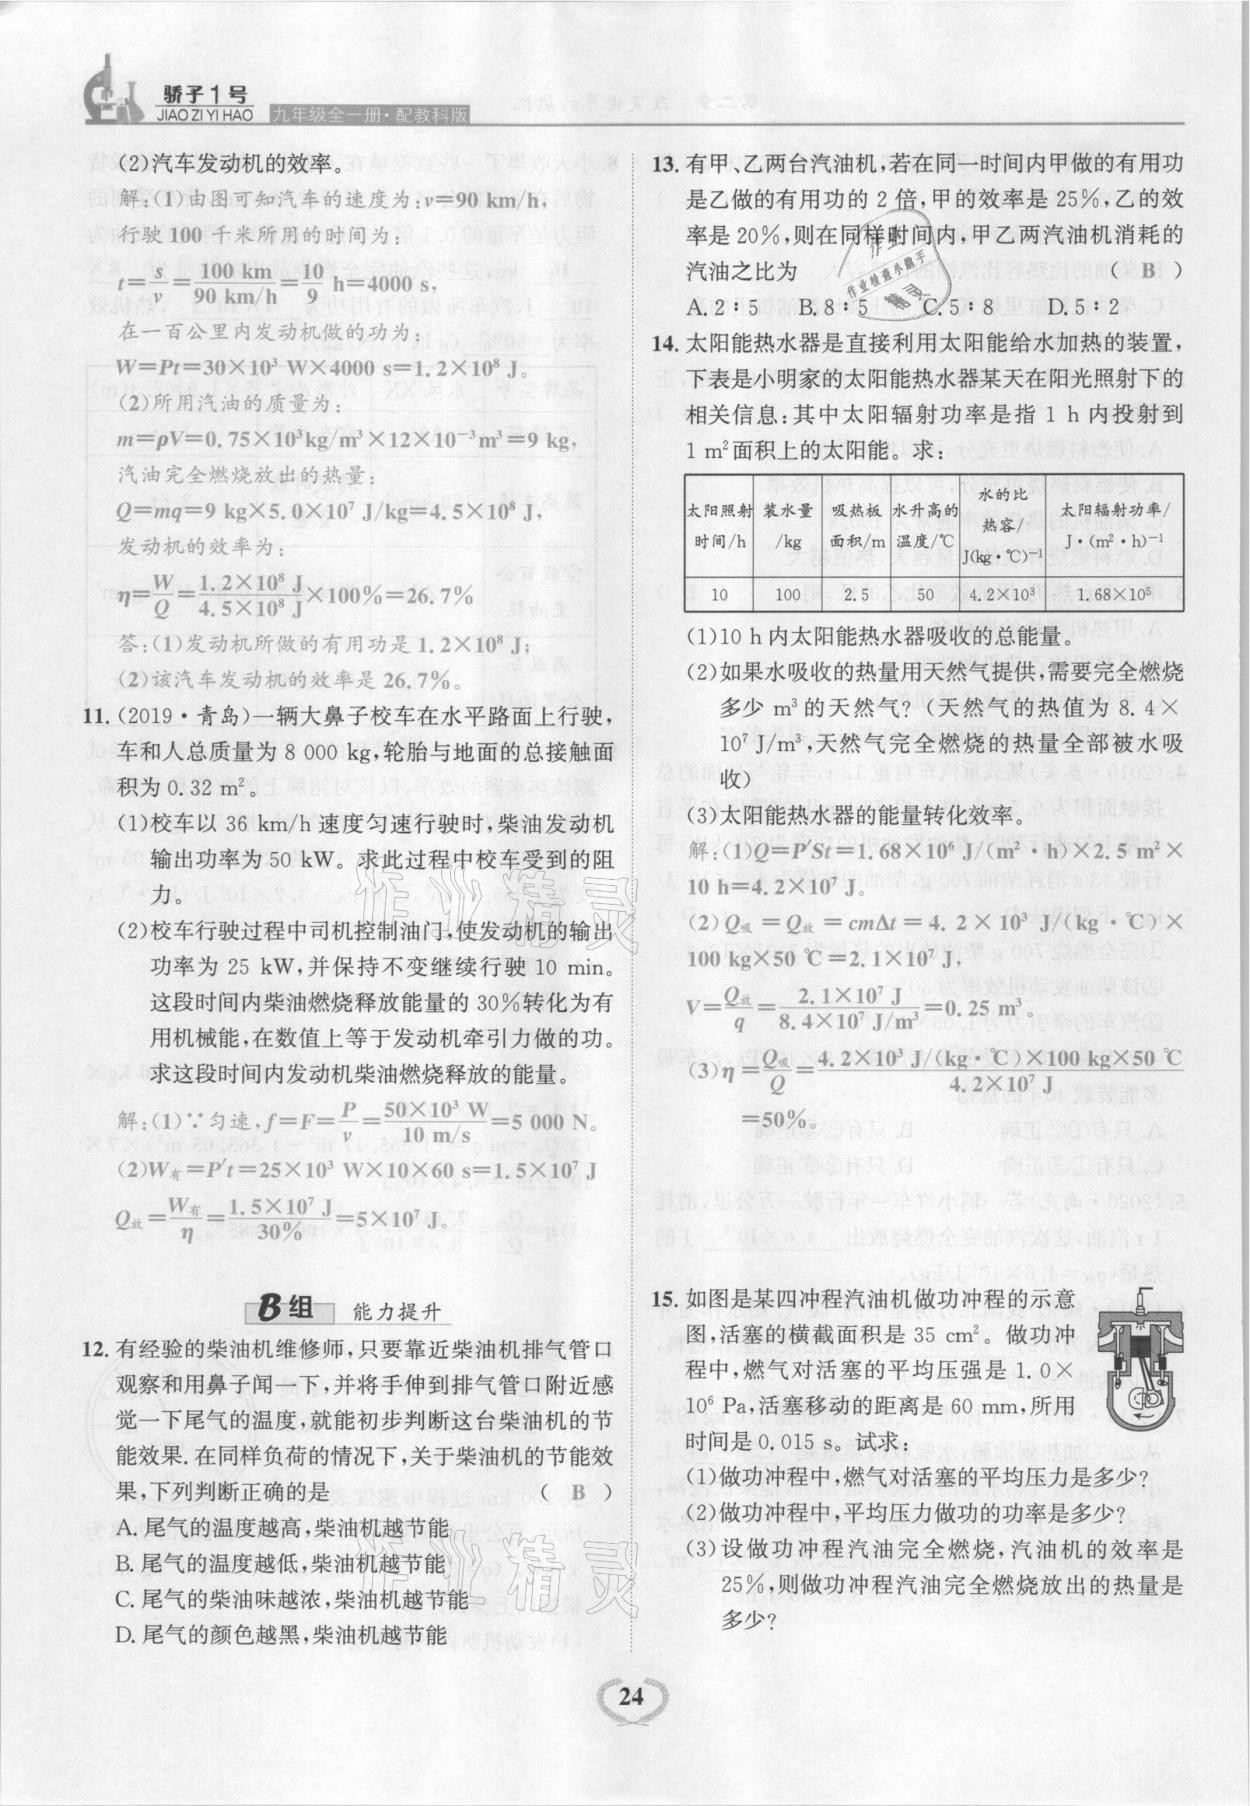 骄子1号
JIAO ZI YI HAO
九年级全一册·配教科版
(2)汽车发动机的效率。
解:(1)由图可知汽车的速度为:v=90 km/h,
行驶100千米所用的时间为:
t=s/v=100 km/90 km/h=10/9 h=4000 s,
在一百公里内发动机做的功为:
W=Pt=30×10³ W×4000 s=1.2×10⁸ J。
(2)所用汽油的质量为:
m=ρV=0.75×10³kg/m³×12×10⁻³m³=9 kg,
汽油完全燃烧放出的热量:
Q=mq=9 kg×5.0×10⁷ J/kg=4.5×10⁸ J,
发动机的效率为:
η=W/Q=1.2×10⁸ J/4.5×10⁸ J×100%=26.7%
答:(1)发动机所做的有用功是1.2×10⁸ J;
(2)该汽车发动机的效率是26.7%。
11.(2019·青岛)一辆大鼻子校车在水平路面上行驶,
车和人总质量为8 000 kg,轮胎与地面的总接触面
积为0.32 m²。
(1)校车以36 km/h速度匀速行驶时,柴油发动机
输出功率为50 kW。求此过程中校车受到的阻
力。
(2)校车行驶过程中司机控制油门,使发动机的输出
功率为25 kW,并保持不变继续行驶10 min。
这段时间内柴油燃烧释放能量的30%转化为有
用机械能,在数值上等于发动机牵引力做的功。
求这段时间内发动机柴油燃烧释放的能量。
解:(1)∵匀速,f=F=P/v=50×10³ W/10 m/s=5 000 N。
(2)W有=P′t=25×10³ W×10×60 s=1.5×10⁷ J
Q放=W有/η=1.5×10⁷ J/30%=5×10⁷ J。
B组 能力提升
12.有经验的柴油机维修师,只要靠近柴油机排气管口
观察和用鼻子闻一下,并将手伸到排气管口附近感
觉一下尾气的温度,就能初步判断这台柴油机的节
能效果.在同样负荷的情况下,关于柴油机的节能效
果,下列判断正确的是 ( B )
A.尾气的温度越高,柴油机越节能
B.尾气的温度越低,柴油机越节能
C.尾气的柴油味越浓,柴油机越节能
D.尾气的颜色越黑,柴油机越节能
13.有甲、乙两台汽油机,若在同一时间内甲做的有用功
是乙做的有用功的2倍,甲的效率是25%,乙的效
率是20%,则在同样时间内,甲乙两汽油机消耗的
汽油之比为 ( B )
A.2∶5 B.8∶5 C.5∶8 D.5∶2
14.太阳能热水器是直接利用太阳能给水加热的装置,
下表是小明家的太阳能热水器某天在阳光照射下的
相关信息:其中太阳辐射功率是指1 h内投射到
1 m²面积上的太阳能。求:
太阳照射时间/h 装水量/kg 吸热板面积/m 水升高的温度/℃ 水的比热容/J(kg·℃)⁻¹ 太阳辐射功率/J·(m²·h)⁻¹
10 100 2.5 50 4.2×10³ 1.68×10⁶
(1)10 h内太阳能热水器吸收的总能量。
(2)如果水吸收的热量用天然气提供,需要完全燃烧
多少m³的天然气?(天然气的热值为8.4×
10⁷ J/m³,天然气完全燃烧的热量全部被水吸
收)
(3)太阳能热水器的能量转化效率。
解:(1)Q=P′St=1.68×10⁶ J/(m²·h)×2.5 m²×
10 h=4.2×10⁷ J。
(2)Q吸=Q放=cmΔt=4.2×10³ J/(kg·℃)×
100 kg×50 ℃=2.1×10⁷ J,
V=Q放/q=2.1×10⁷ J/8.4×10⁷ J/m³=0.25 m³。
(3)η=Q吸/Q=4.2×10³ J/(kg·℃)×100 kg×50 ℃/4.2×10⁷ J
=50%。
15.如图是某四冲程汽油机做功冲程的示意
图,活塞的横截面积是35 cm²。做功冲
程中,燃气对活塞的平均压强是1.0×
10⁶ Pa,活塞移动的距离是60 mm,所用
时间是0.015 s。试求:
(1)做功冲程中,燃气对活塞的平均压力是多少?
(2)做功冲程中,平均压力做功的功率是多少?
(3)设做功冲程汽油完全燃烧,汽油机的效率是
25%,则做功冲程汽油完全燃烧放出的热量是
多少?
作业精灵
作业精灵
24